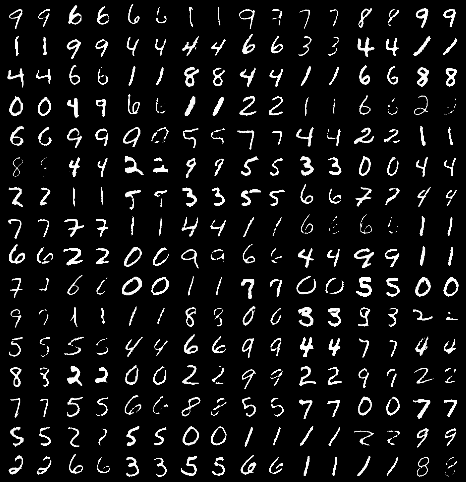 9 9 6 6 6 6 1 1 9 9 7 7 8 8 9 9
1 1 9 9 4 4 4 4 6 6 3 3 4 4 1 1
4 4 6 6 1 1 8 8 4 4 1 1 6 6 8 8
0 0 4 9 6 6 1 1 2 2 1 1 6 6 2 2
6 6 9 9 9 0 5 5 7 7 4 4 2 2 1 1
8 8 4 4 2 2 9 9 5 5 3 3 0 0 4 4
2 2 1 1 5 5 3 3 5 5 6 6 7 7 4 4
7 7 7 7 1 1 4 4 1 1 6 6 6 6 1 1
6 6 2 2 0 0 9 9 6 6 4 4 9 9 1 1
7 7 6 6 0 0 1 1 7 7 0 0 5 5 0 0
9 9 1 1 1 1 8 8 0 0 3 3 9 3 2 2
5 5 5 5 4 4 6 6 9 9 4 4 7 7 4 4
8 8 2 2 0 0 2 2 9 9 2 2 9 9 2 2
7 7 5 5 6 6 8 8 5 5 7 7 0 0 7 7
5 5 2 2 5 5 0 0 1 1 1 1 2 2 9 9
2 2 6 6 3 3 5 5 6 6 1 1 1 1 8 8